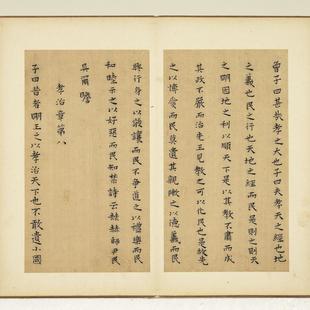 曾子曰甚哉孝之大也子曰夫孝天之經也地
之義也民之行也天地之經而民是則之則天
之明因地之利以順天下是以其教不肅而成
其政不嚴而治先王見教之可以化民也是故先
之以博愛而民莫遺其親陳之以德義而民
興行先之以敬讓而民不爭道之以禮樂而民
和睦示之以好惡而民知禁詩云赫赫師尹民
具爾瞻
孝治章第八
子曰昔者明王之以孝治天下也不敢遺小國